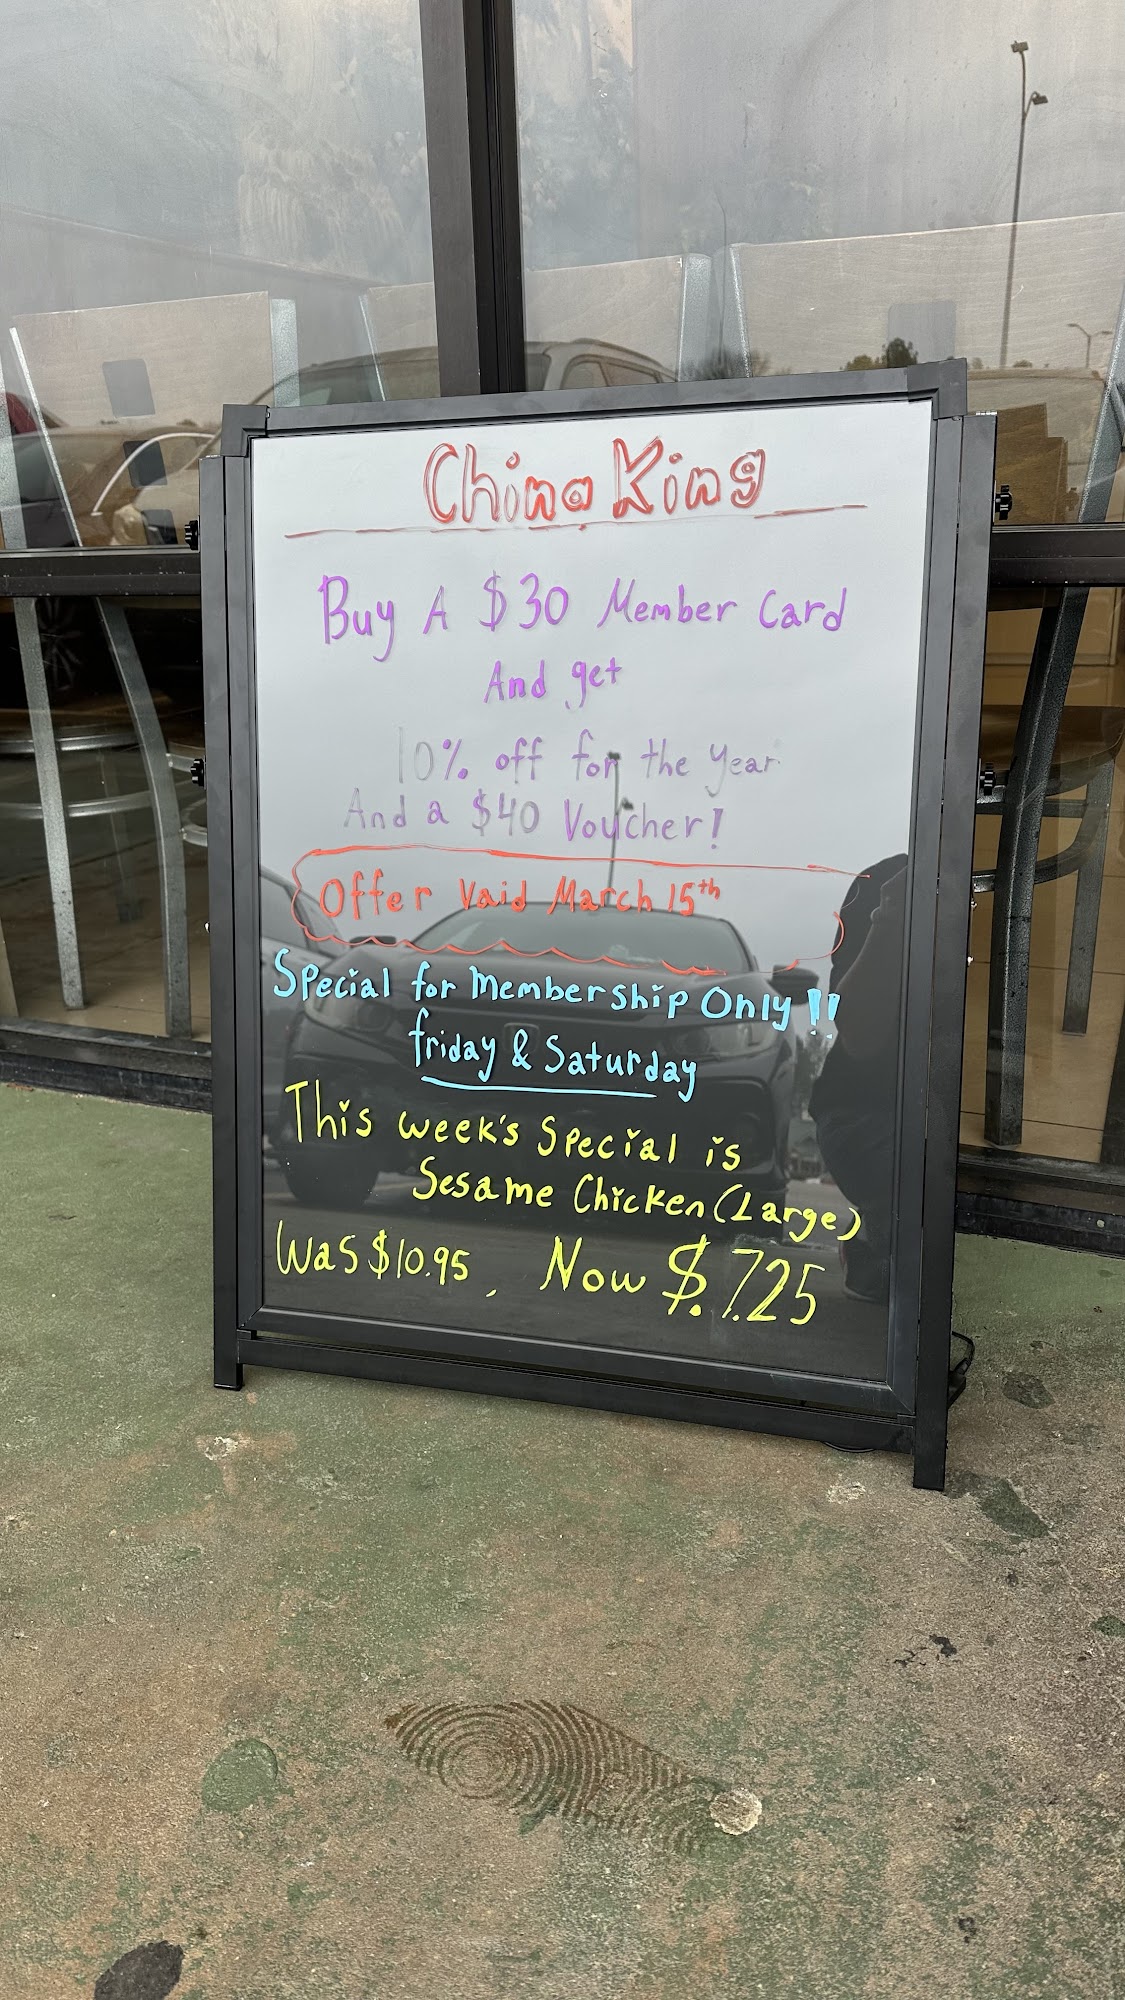 China King
Buy A $30 Member Card
And get
10% off for the year
And a $40 Voucher!
Offer Vaid March 15th
Special for Membership Only !!
friday & Saturday
This week's Special is
Sesame Chicken (Large)
Was $10.95, Now $.7.25